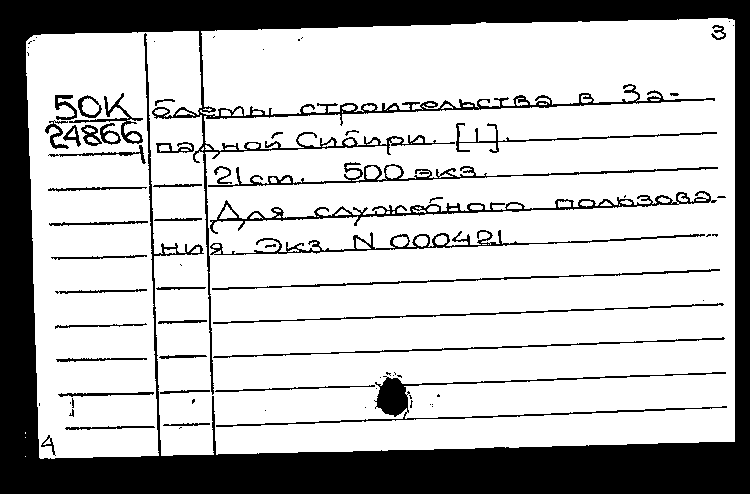 3
50К блемы строительства в За-
24866 падной Сибири. [1].
1
21 см. 500 экз.
Для служебного пользова-
ния. Экз. N 000421.
1
4